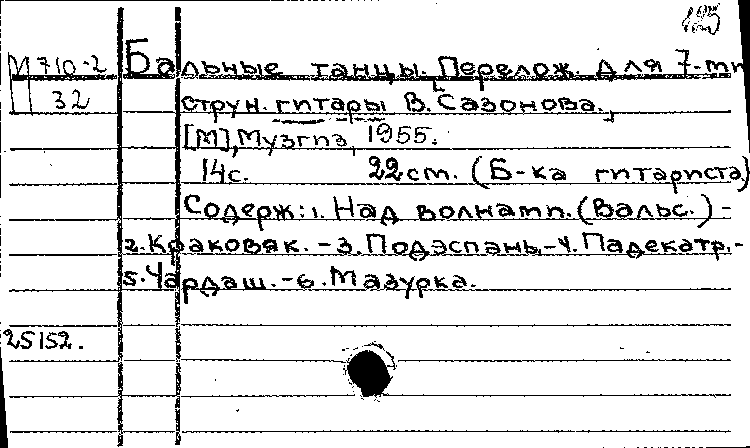 125
М710-2 Бальные танцы. Перелож. для 7-ти
32 струн. гитары В. Сазонова.
[М], Музгиз, 1955.
14с. 22cm. (Б-ка гитариста)
Содерж: 1. Над волнами. (Вальс.) -
2. Краковяк. - 3. Подэспань. - 4. Падекатр. -
5. Чардаш. - 6. Мазурка.
25152.